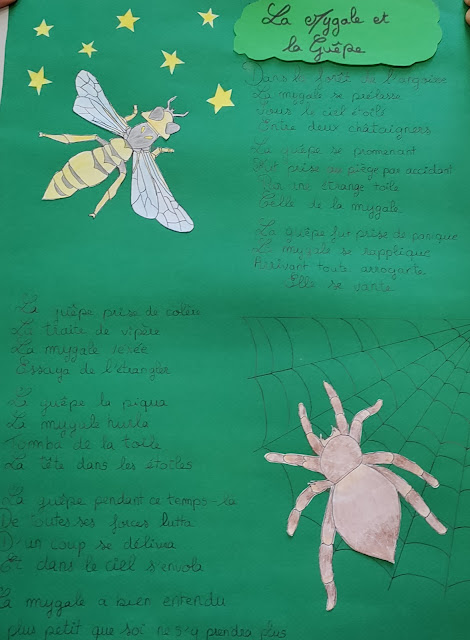 La Mygale et
la Guêpe
Dans la forêt de l'angoisse
La mygale se prélasse
Sous le ciel étoilé
Entre deux châtaigners
La guêpe se promenant
Fut prise au piège par accidant
Par une étrange toile
Celle de la mygale
La guêpe fut prise de panique
La mygale se rapplique
Arrivant toute arrogante
Elle se vante
La guêpe prise de colère
La traite de vipère
La mygale vexée
Essaya de l'étrangler
La guêpe la piqua
La mygale hurla
Tomba de la toile
La tête dans les étoiles
La guêpe pendant ce temps-la
De toutes ses forces lutta
D'un coup se délivra
Et dans le ciel s'envola
La mygale a bien entendu
plus petit que soi ne s'y prendra plus